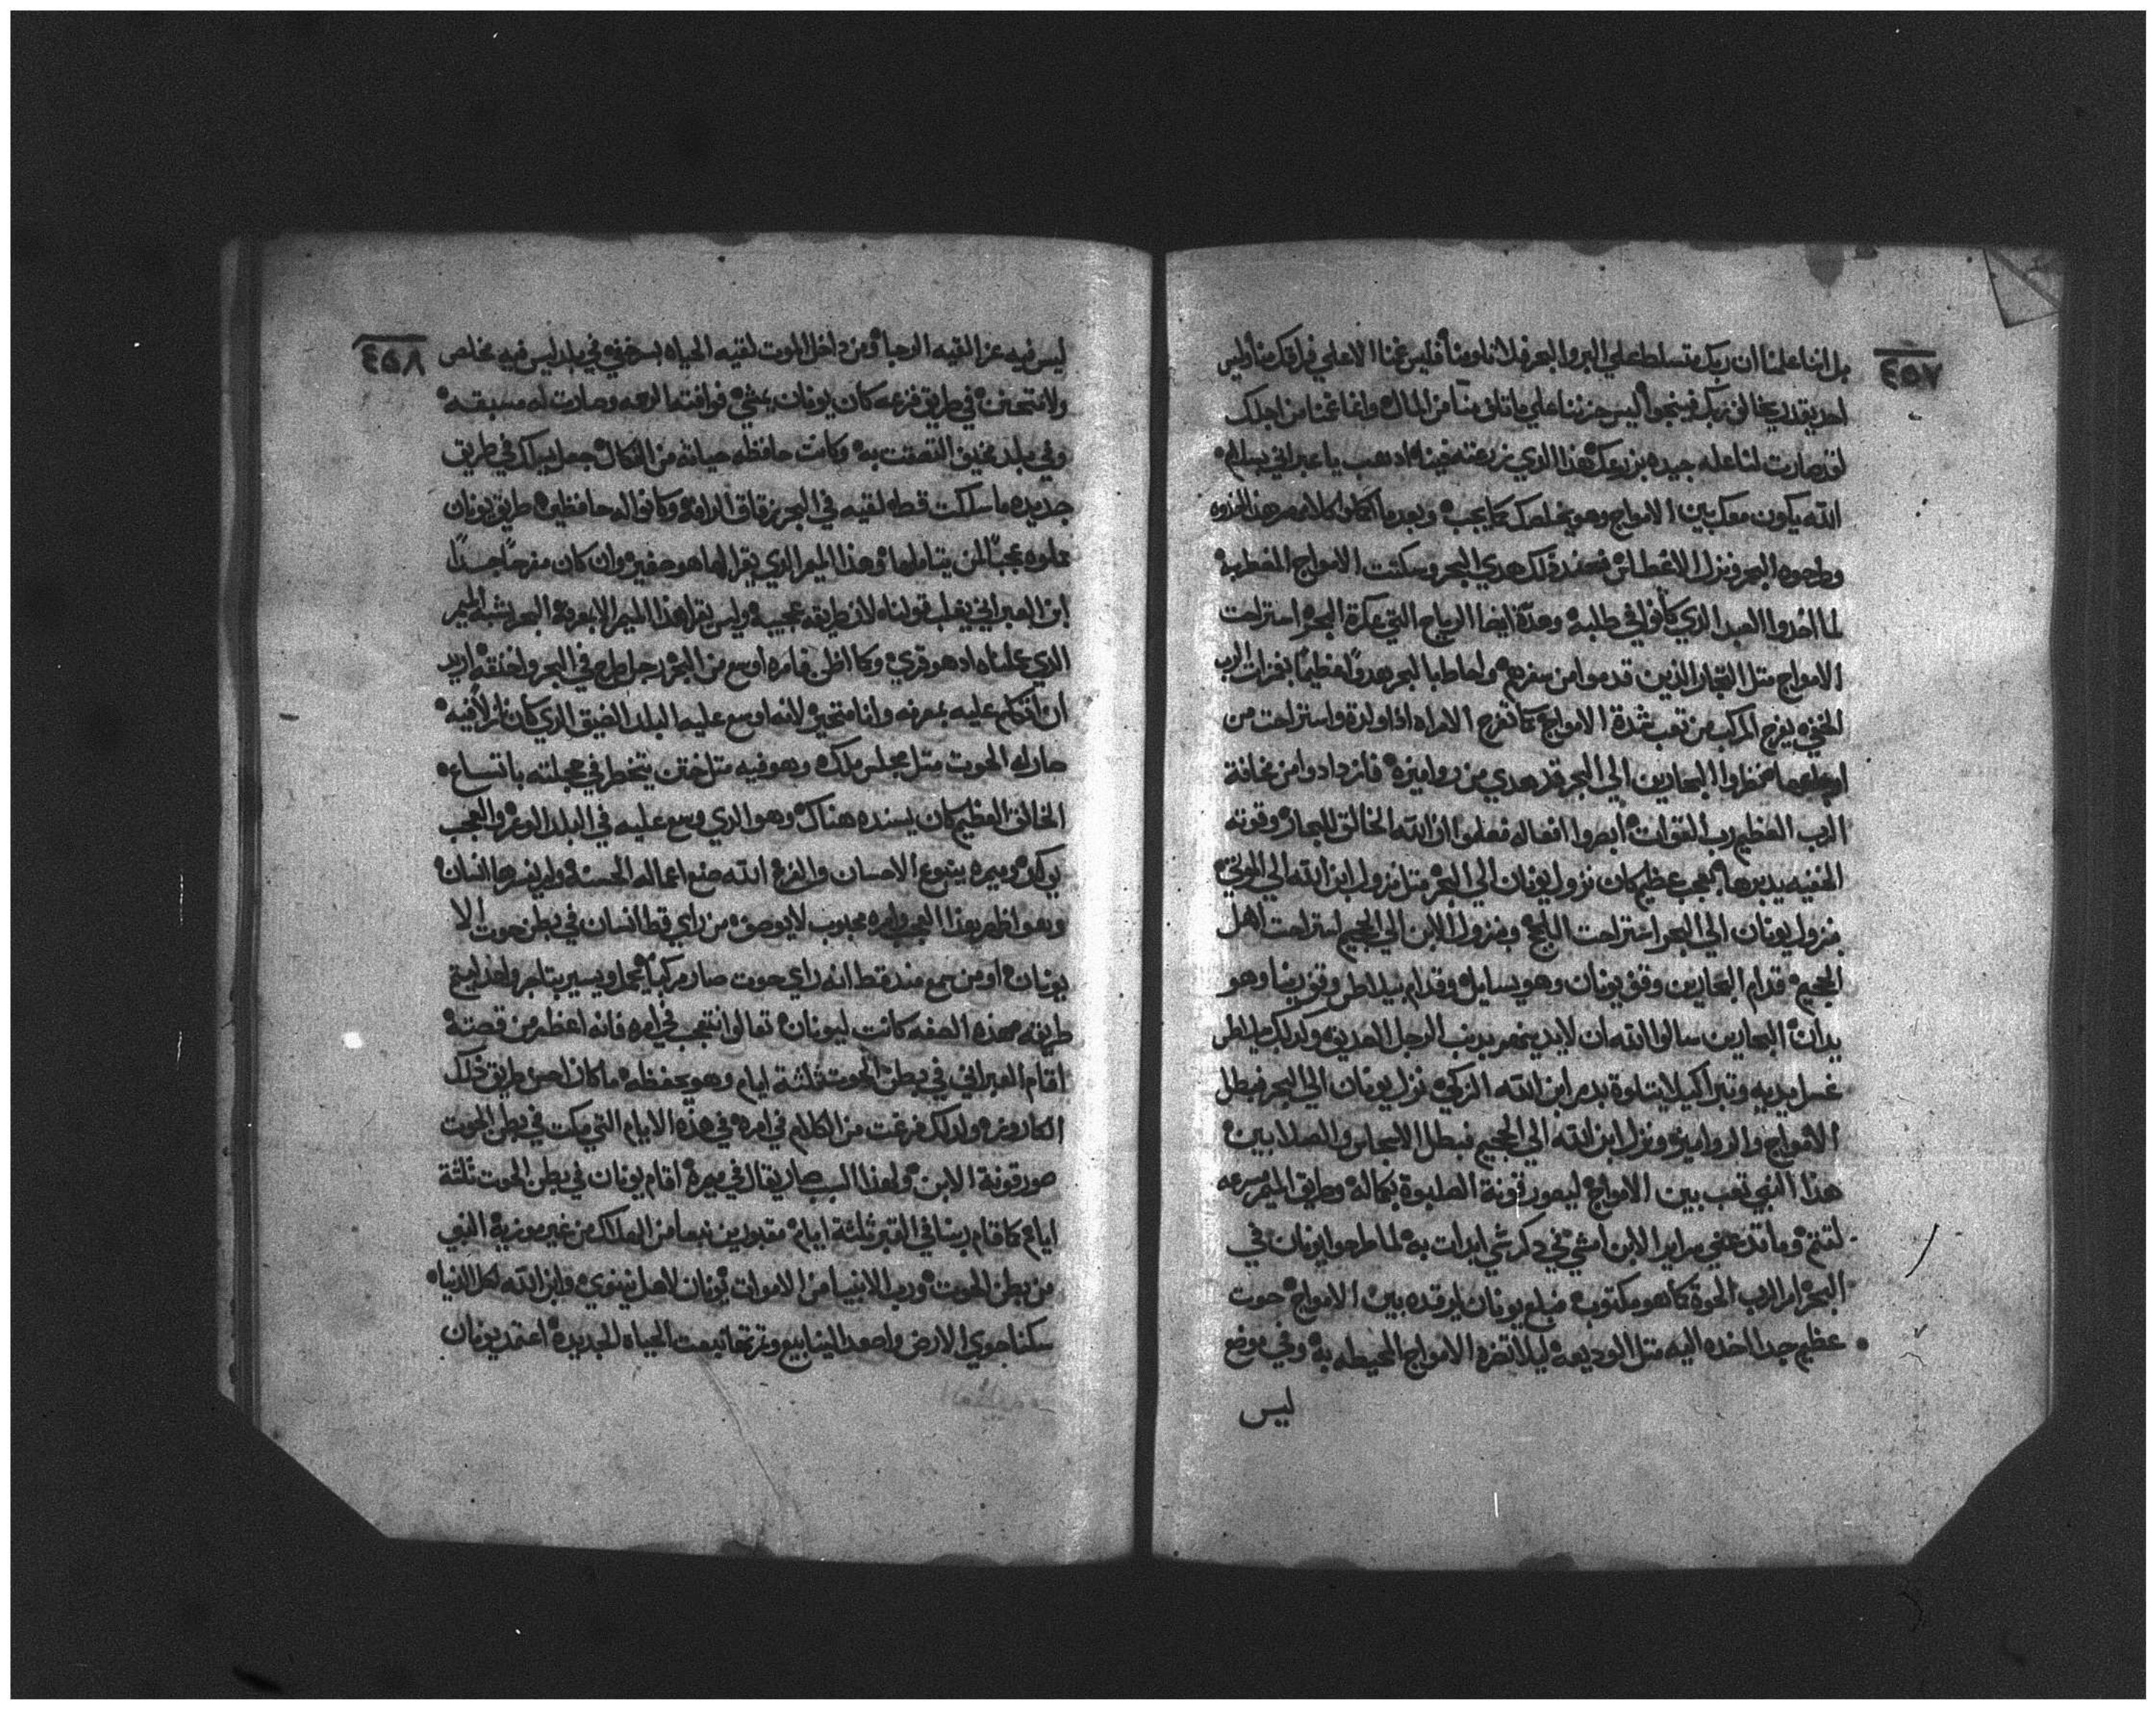 ٤٥٧
بل اننا علمنا ان ربك متسلط علي البر والبحر
احد يقدر يخالف ربك فينجوا اليس حزننا علي ما تلف منا من المال وانما غمنا من اجلك
لقد صارت لنا عله جيده بزرعك هذا الدي زرعته فينا ادهب يا عبراني بسلام
الله يكون معك بين الامواج وهو يخلصك كما يجب وبعد ما
وطرحوه البحر ونزل الاغطاس فعند دلك هدي البحر وسكنت الامواج المضطربه
لما اخدوا العبد الدي كانوا في طلبه وهدة ايضا الرياح التي عكرة البحر استراحت
الامواج متل التجار الدين قدموا من سفرهم واحاط بالبحر هدوا عظيما بغمزات الرب
الخفيه يفرح المركب من تعب شدة الامواج كما تفرح الامراه ادا ولدة واستراحت من
اوجاعها نظروا البحارين الي البحر قد هدي من زواميزه فازدادوا من مخافة
الرب العظيم رب القوات ابصروا افعاله فعلموا ان الله الخالق للبحار وقوته
الخفيه يدبرها بعجب عظيم كان نزول يونان الي البحر متل نزول ابن الله الي الموتي
بنزول يونان الي البحر استراحت اللجج وبنزول الابن الي الجحيم استراحت اهل
الجحيم قدام البحارين وقف يونان وهو يسايل وقدام بيلاطس وقف ربنا وهو
يدان البحارين سالوا الله ان لا يدينهم بدنب الرجل الصديق ولدلك بيلاطس
غسل يديه وتبرا كيلا يتلوة بدم ابن الله الزكي نزل يونان الي البحر فبطل
الامواج والزواميز ونزل ابن الله الي الجحيم فبطل الانجاس والصلابين
هدا النبي تعب بين الامواج ليصور قونة الصلبوة بكماله وطريق الميمر سرعه
لتتم وما تدعني سراير الابن امشي في دكر شي ابدات به لما طرحوا يونان في
البحر امر الرب الحوة كما هو مكتوب فبلع يونان ليرقده بين الامواج حوت
عظيم جدا اخده اليه متل الوديعه ليلا تضره الامواج المحيطه به وفي موضع
ليس
٤٥٨
ليس فيه عزا لقيه الرجا ومن داخل الموت لقيه الحياه بسرخفيه في بلد ليس فيه مخلص
ولا متحنن في طريق فزعه كان يونان يمشي فوافته الرحمه وصارت له مسبقه
وفي بلد مخيف التصقت به وكانت حافظه حياته من النكال جعل يسلك في طريق
جديده ما سلكت قط لقيه في البحر زقاق الرافه وكانوا له حافظين طريق يونان
مملوه عجبا لمن يتاملها وهدا الميمر الدي يقرا لها هو صغير وان كان مفرحا جدا
ابن العبراني يغلب قولنا لان طريقه عجيبه وليس يقرا هدا الميمر الا بمعرفة البحر يشبه الميمر
الدي عملناه اد هو قري وكما اظن فامره اوسع من البحر رجل طرح في البحر واختفه اريد
ان اتكلم عليه بمعرفه وانا متحير لانه اوسع عليه البلد الضيق الدي كان نازلا فيه
صار له الحوت متل مجلس ملك وهو فيه متل ختن يتخطر في حجلته باتساع
الخالق العظيم كان يسنده هناك وهو الدي وسع عليه في البلد الوعر والعجب
لي كل وميره ينبوع الاحسان والفرح الله صنع اعماله الحسنه ولم يفسرها انسان
وهو اظهر بهدا العجب وامره محبوب لا يوصف من راي قط انسان في بطن حوت الا
يونان او من سمع مند قط انه راي حوت صار مركبا محملا ويسير بتاجر واحد امتع
طريقه بهده الصفه كانت ليونان تعالوا نتعجب في امره فانه اعظم من قصته
اقام العبراني في بطن الحوت ثلثة ايام وهو يحفظه ما كان احسن طريق دلك
الكاروز ولدلك فرغت من الكلام في امره في هده الايام التي مكت في بطن الحوت
صور قونة الابن ولهدا السبب صار يقال في ميمرة اقام يونان في بطن الحوت ثلثة
ايام كما قام ربنا في القبر ثلثة ايام مقبودين نبعا من الهلاك من غير موزية النبي
من بطن الحوت ورب الانبيا من الاموات يونان لاهل نينوي وابن الله لكل الدنيا
سكنا جوي الارض واصعد الينابيع وتربتها تبعت الحياه الجديده اعتمد يونان